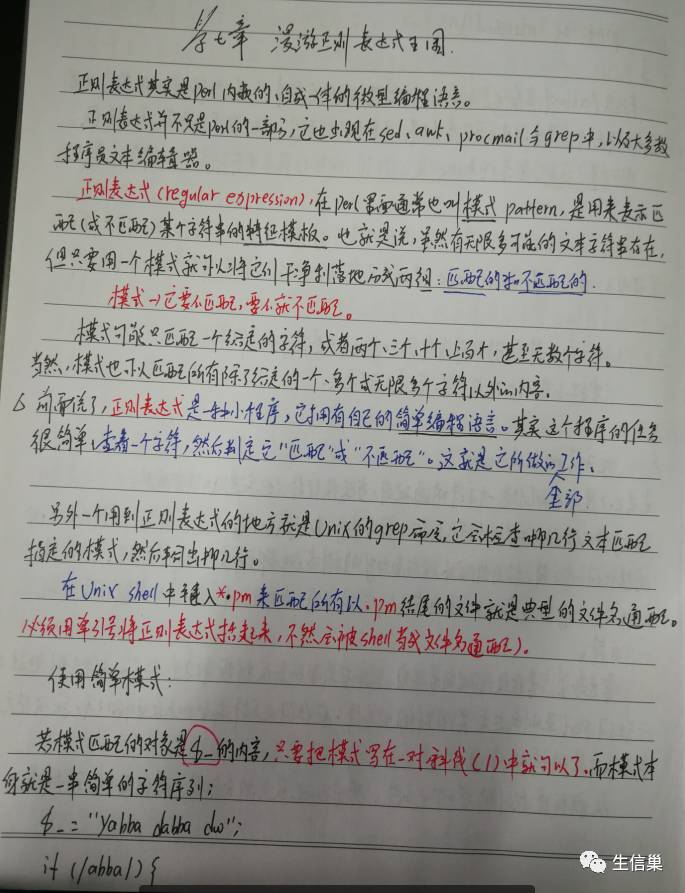 第七章 漫游正则表达式王国.
正则表达式其实是perl内嵌的、自成一体的微型编程语言。
正则表达式并不只是perl的一部分,它也出现在sed、awk、procmail与grep中,以及大多数
程序员文本编辑器。
正则表达式(regular expression),在perl里面通常也叫模式 pattern,是用来表示匹
配(或不匹配)某个字符串的特征模板。也就是说,虽然有无限多可能的文本字符串存在,
但只要用一个模式就可以将它们干净利落地分成两组:匹配的和不匹配的.
模式→它要么匹配,要么就不匹配。
模式可能只匹配一个给定的字符,或者两个、三个、十个、上百个,甚至无数个字符。
当然,模式也可以匹配所有除了给定的一个、多个或无限多个字符以外的内容.
△ 前面说了,正则表达式是一种小程序,它拥有自己的简单编程语言。其实这个程序的任务
很简单:查看一个字符,然后判定它"匹配"或"不匹配"。这就是它所做的工作.
全部
另外一个用到正则表达式的地方就是Unix的grep命令,它会检查哪几行文本匹配
指定的模式,然后输出哪几行。
在Unix shell中键入*.pm来匹配所有以.pm结尾的文件就是典型的文件名通配。
(必须用单引号将正则表达式括起来,不然会被shell当成文件名通配).
使用简单模式:
若模式匹配的对象是$_的内容,只要把模式写在一对斜线(/)中就可以了.而模式本
身就是一串简单的字符序列;
$_ = "yabba dabba doo";
if (/abba/) {
生信巢